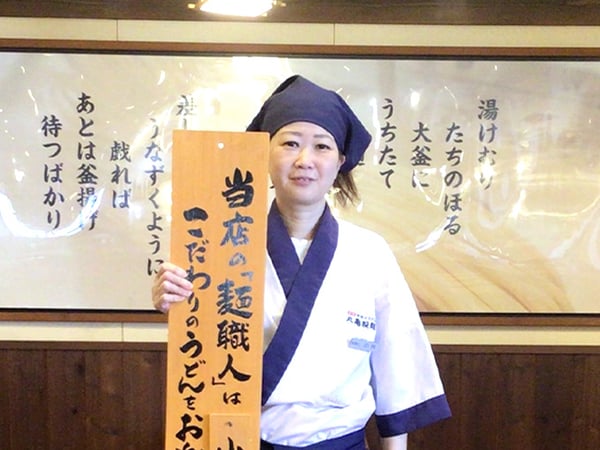 湯けむり
たちのぼる
大釜に
うちたて
差し
うなずくように
戯れば
あとは釜揚げ
待つばかり
当店の「麺職人」は
こだわりのうどんをお
丸亀製麺